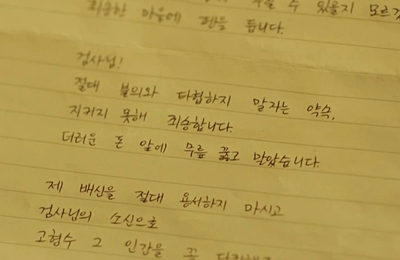 수 있을지 모르겠
죄송한 마음에 펜을 듭니다.
검사님!
절대 불의와 타협하지 말자는 약속,
지키지 못해 죄송합니다.
더러운 돈 앞에 무릎 꿇고 말았습니다.
제 배신을 절대 용서하지 마시고
검사님의 소신으로
고형수 그 인간을 꼭